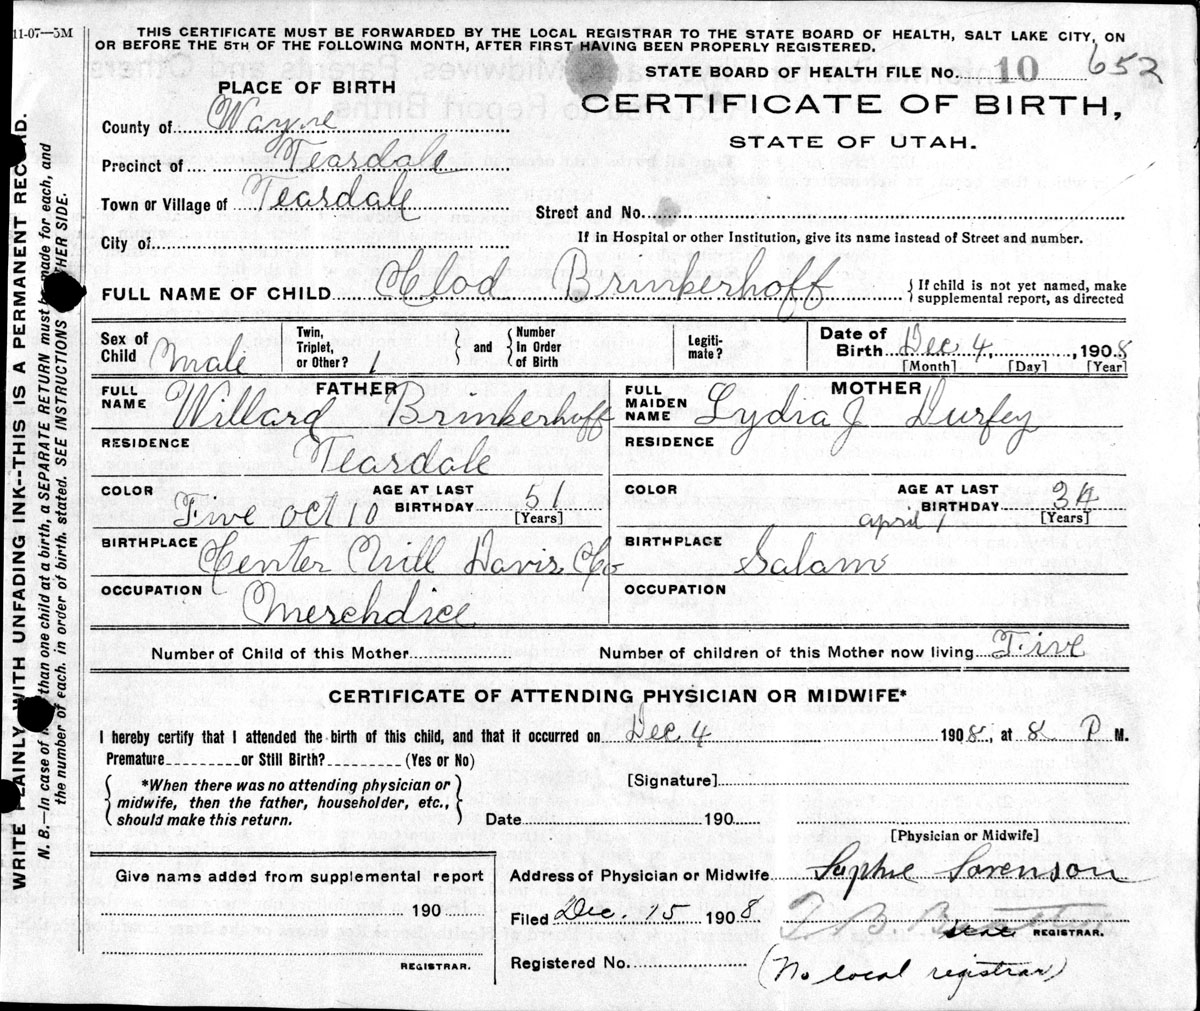 11-07—5M
THIS CERTIFICATE MUST BE FORWARDED BY THE LOCAL REGISTRAR TO THE STATE BOARD OF HEALTH, SALT LAKE CITY, ON
OR BEFORE THE 5TH OF THE FOLLOWING MONTH, AFTER FIRST HAVING BEEN PROPERLY REGISTERED.
STATE BOARD OF HEALTH FILE NO. 10 652
PLACE OF BIRTH
CERTIFICATE OF BIRTH,
STATE OF UTAH.
County of Wayne
Precinct of Teasdale
Town or Village of Teasdale
Street and No.
City of
If in Hospital or other Institution, give its name instead of Street and number.
FULL NAME OF CHILD Clod Brinkerhoff { If child is not yet named, make
supplemental report, as directed
Sex of Child Male
Twin, Triplet, or Other? 1
and
Number In Order of Birth
Legiti- mate?
Date of Birth Dec 4, 1908
[Month] [Day] [Year]
FATHER
FULL NAME Willard Brinkerhoff
MOTHER
FULL MAIDEN NAME Lydia J Durfey
RESIDENCE Teasdale
RESIDENCE
COLOR Five Oct 10 AGE AT LAST BIRTHDAY 51
[Years]
COLOR april 1 AGE AT LAST BIRTHDAY 34
[Years]
BIRTHPLACE Center Vill Davis Co
BIRTHPLACE Salam
OCCUPATION Merchdice
OCCUPATION
Number of Child of this Mother Number of children of this Mother now living Five
CERTIFICATE OF ATTENDING PHYSICIAN OR MIDWIFE*
I hereby certify that I attended the birth of this child, and that it occurred on Dec. 4 1908, at 8 P M.
Premature or Still Birth? (Yes or No)
*When there was no attending physician or
midwife, then the father, householder, etc.,
should make this return.
[Signature]
Date 190
[Physician or Midwife]
Give name added from supplemental report
190
REGISTRAR.
Address of Physician or Midwife Sophie Sorenson
Filed Dec. 15 1908 T. B. REGISTRAR.
Registered No. (No local registrar)
WRITE PLAINLY WITH UNFADING INK--THIS IS A PERMANENT RECORD.
N. B.—In case of more than one child at a birth, a SEPARATE RETURN must be made for each, and
the number of each. in order of birth. stated. SEE INSTRUCTIONS OTHER SIDE.